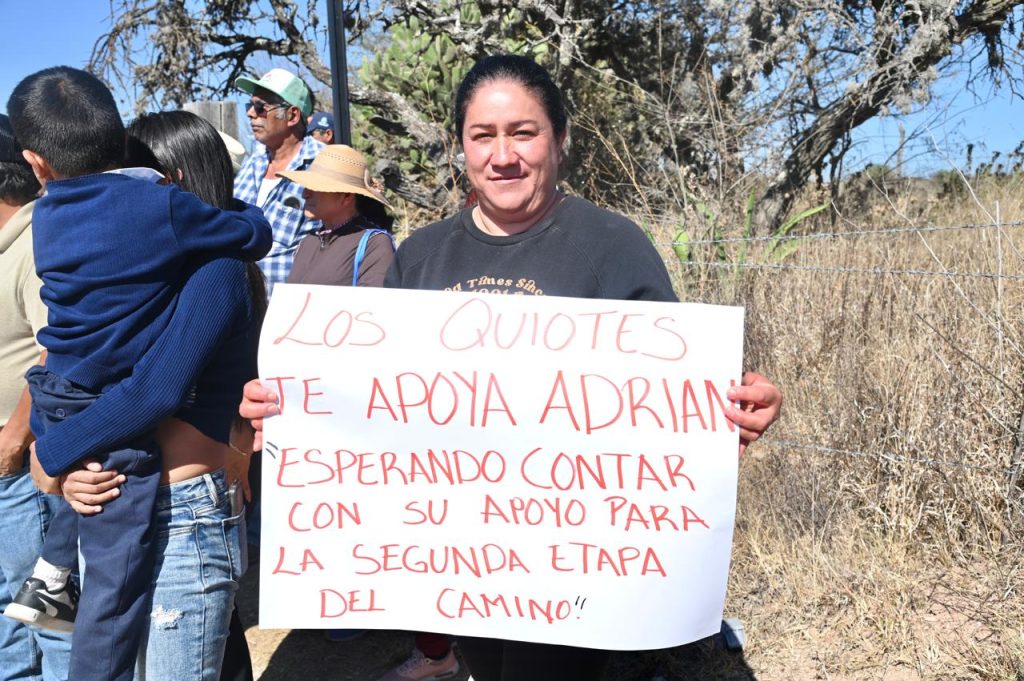 Good Times Since
LOS QUIOTES
TE APOYA ADRIAN
"ESPERANDO CONTAR
CON SU APOYO PARA
LA SEGUNDA ETAPA
DEL CAMINO"